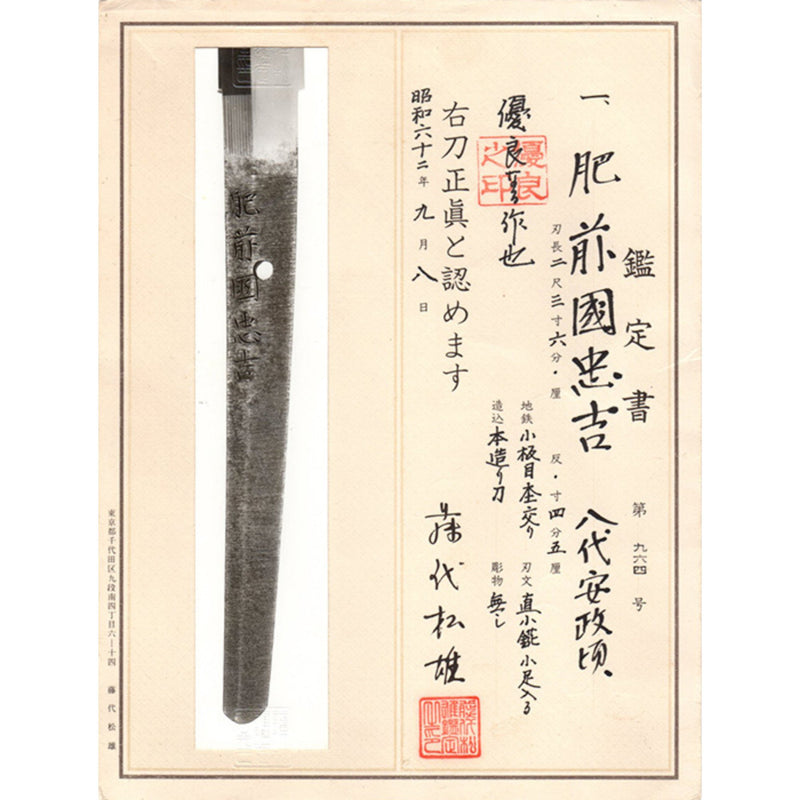 鑑定書
第 九六四 号
一、肥前國忠吉 八代安政頃、
刃長二尺三寸六分・厘 反・寸四分五厘
地鉄 小板目杢交り 刃文 直小錵小足入る
造込 本造り刀 彫物 無し
優良
之印
優良著作也
右刀正眞と認めます
昭和六十二年九月八日
藤代松雄
肥前國忠吉
東京都千代田区九段南四丁目六ー十四 藤代松雄